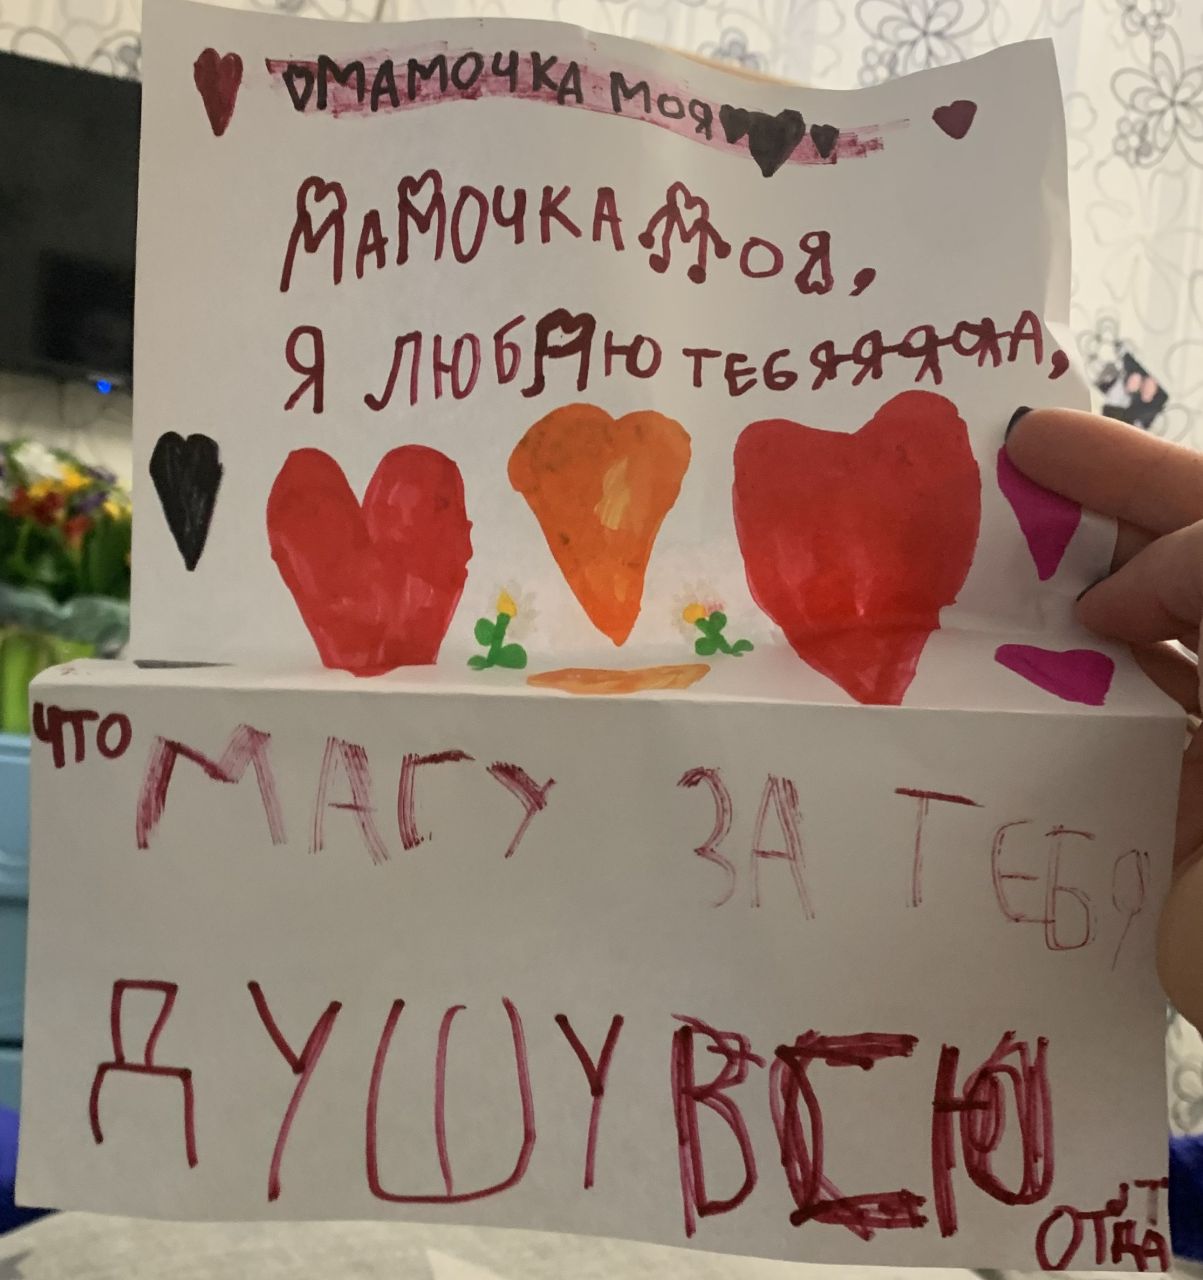 МАМОЧКА МОЯ
МАМОЧКА МОЯ,
Я ЛЮБЛЮ ТЕБЯЯЯЯЯ,
ЧТО МАГУ ЗА ТЕБЯ
ДУШУ ВСЮ
ОТДАТЬ